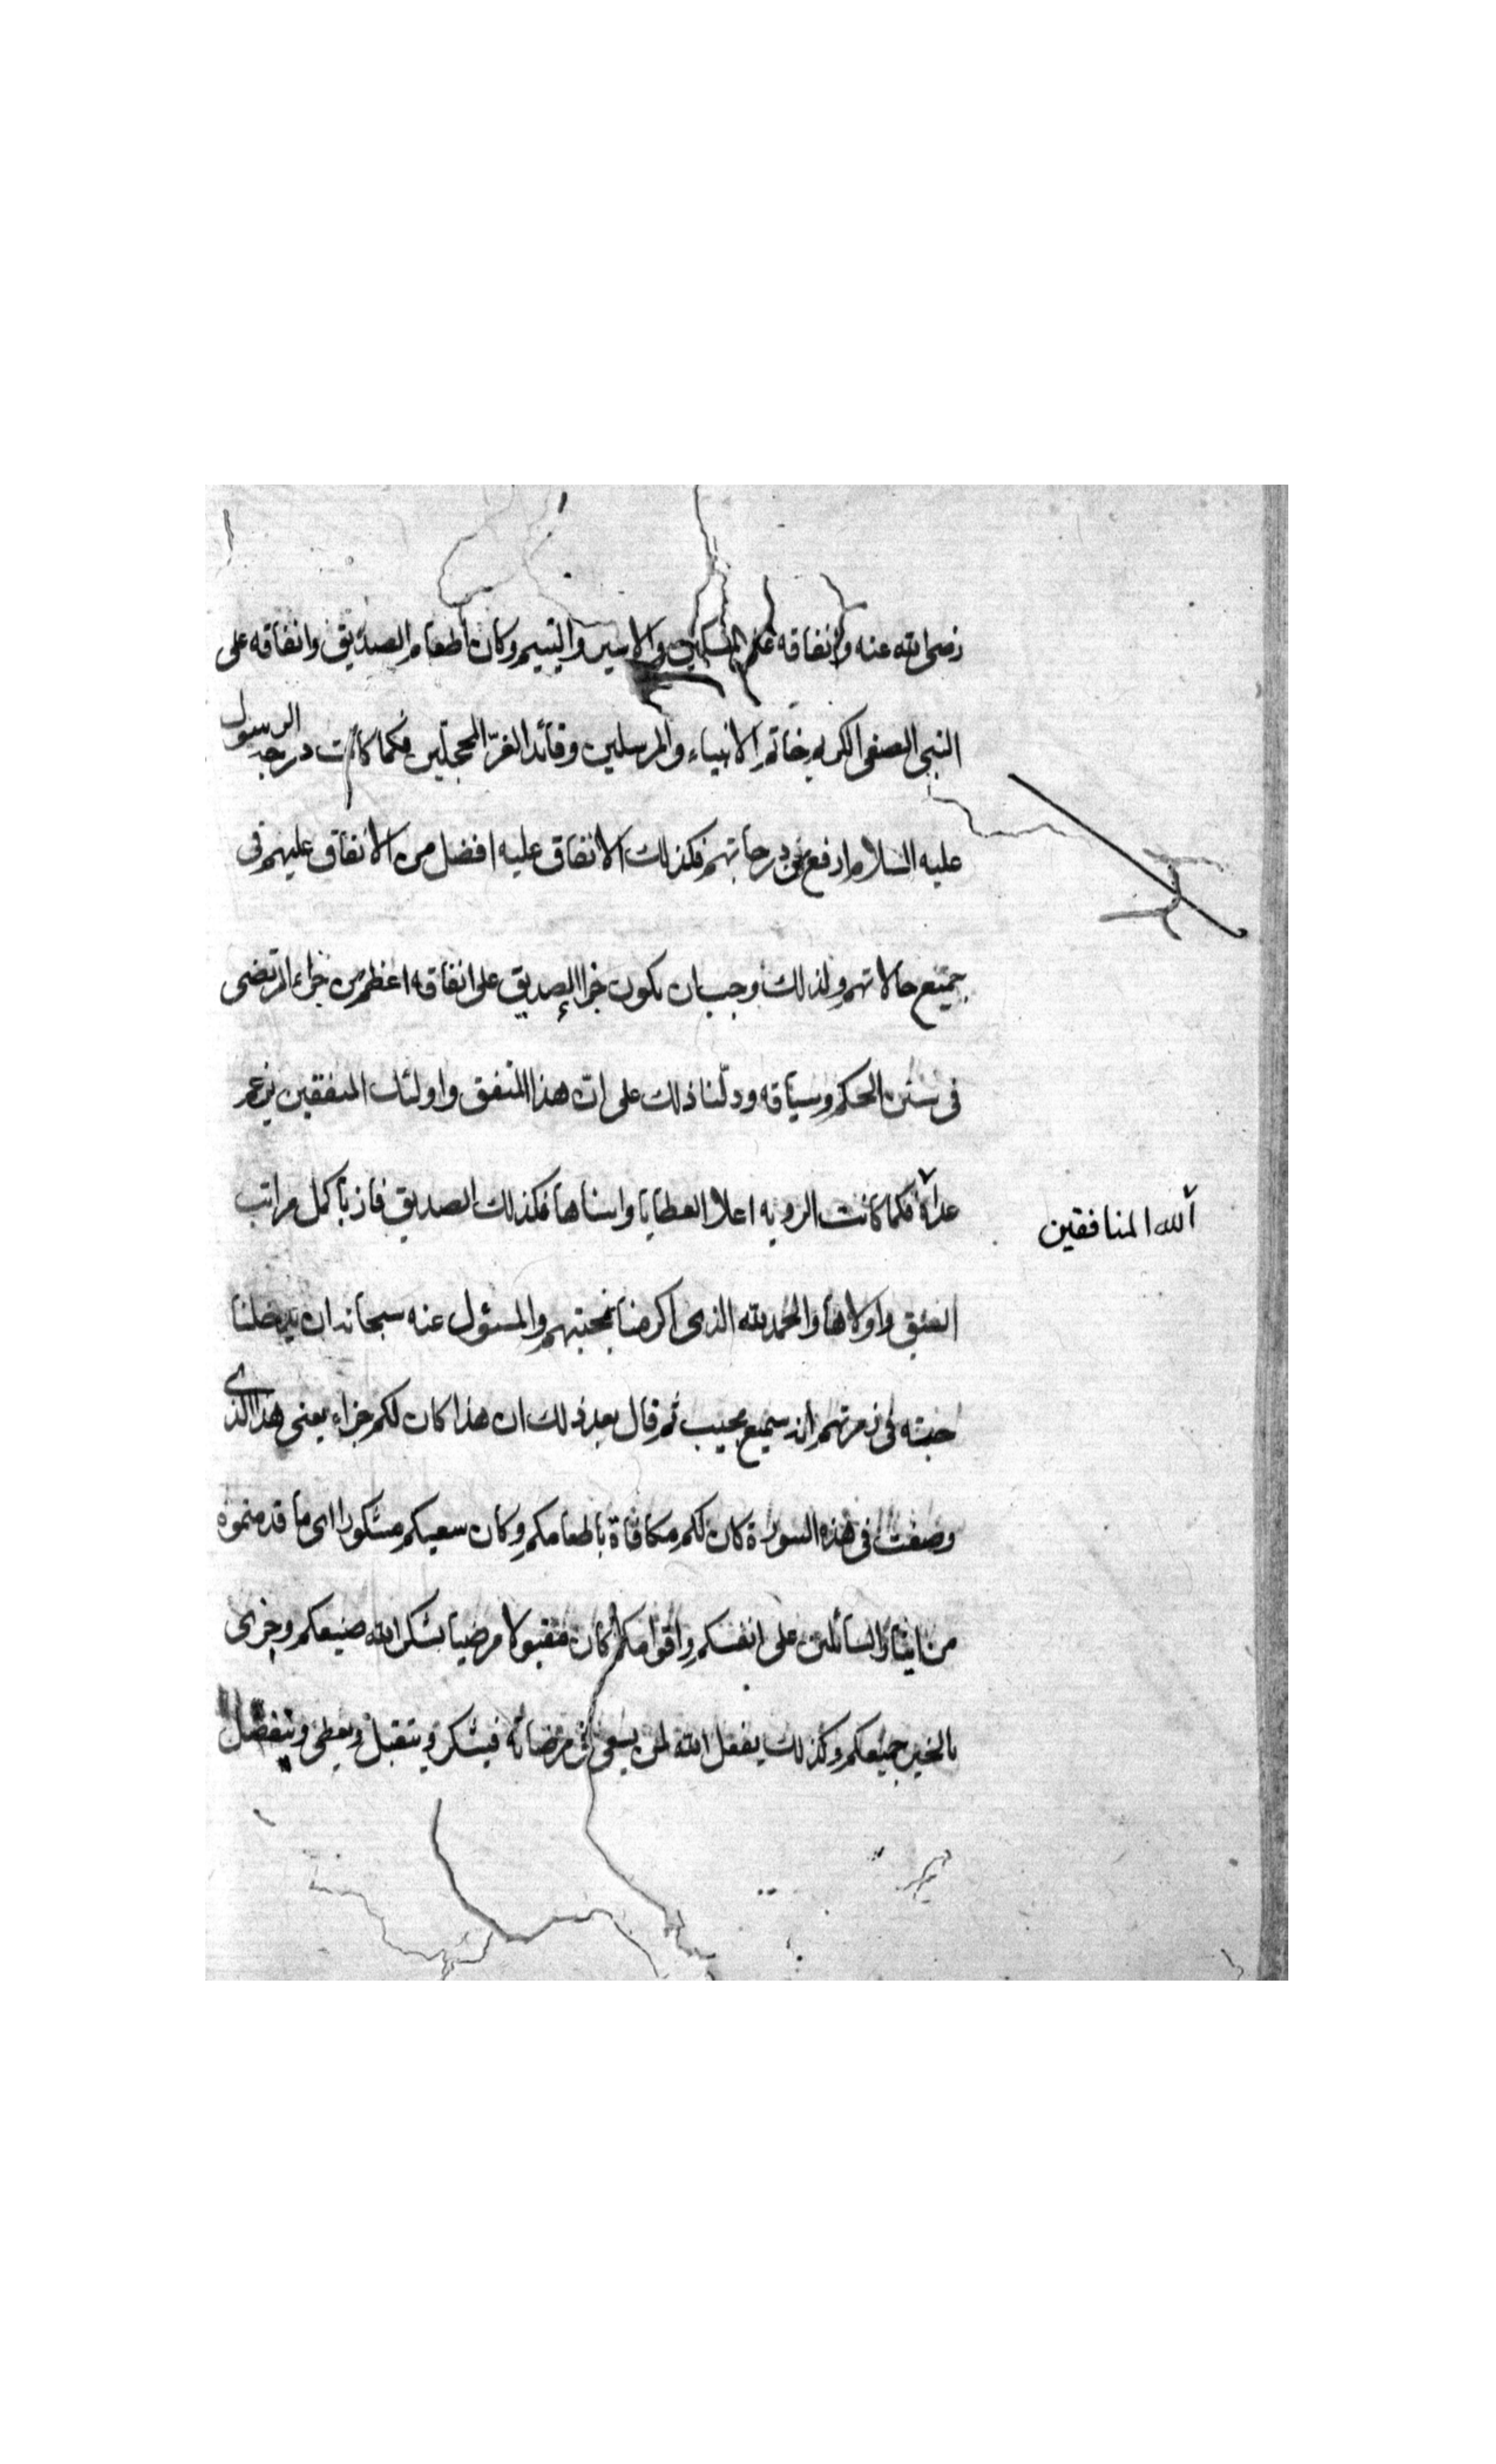 رضى الله عنه وانفاقه على المسكين والاسير واليتيم وكان اطعام الصديق وانفاقه على
النبى الصفى الكريم خاتم الانبياء والمرسلين وقائد الغرّ المحجّلين فكما كانت درجة الرسول
عليه السلام ارفع من درجاتهم فكذلك الانفاق عليه افضل من الانفاق عليهم فى
جميع حالاتهم ولذلك وجب ان يكون جزاء الصديق على انفاقه اعظم من جزاء المرتضى
فى سنن الحكم وسياقه ودلّنا ذلك على انّ هذا المنفق واولئك المنفقين يزعم
الله المنافقين
عداة فكما كانت الرويه اعلا العطايا واسناها فكذلك الصديق فاز باكمل مراتب
واولاها والحمد لله الذى اكرمنا بمحبتهم والمسئول عنه سبحانه ان يدخلنا
جنته فى زمرتهم انه سميع مجيب ثم قال بعد ذلك ان هذا كان لكم جزاء يعنى هذا الذى
وصفت فى هذه السورة كان لكم مكافاة باطعامكم وكان سعيكم مشكورا اى ما قدمتموه
من ايثار السائلين على انفسكم واقوامكم كان مقبولا مرضيا بشكر الله صنيعكم وجزى
بالخير جميعكم وكذلك يفعل الله لمن يسعى فى مرضاته فيشكر ويتقبل ويعطى ويتفضل